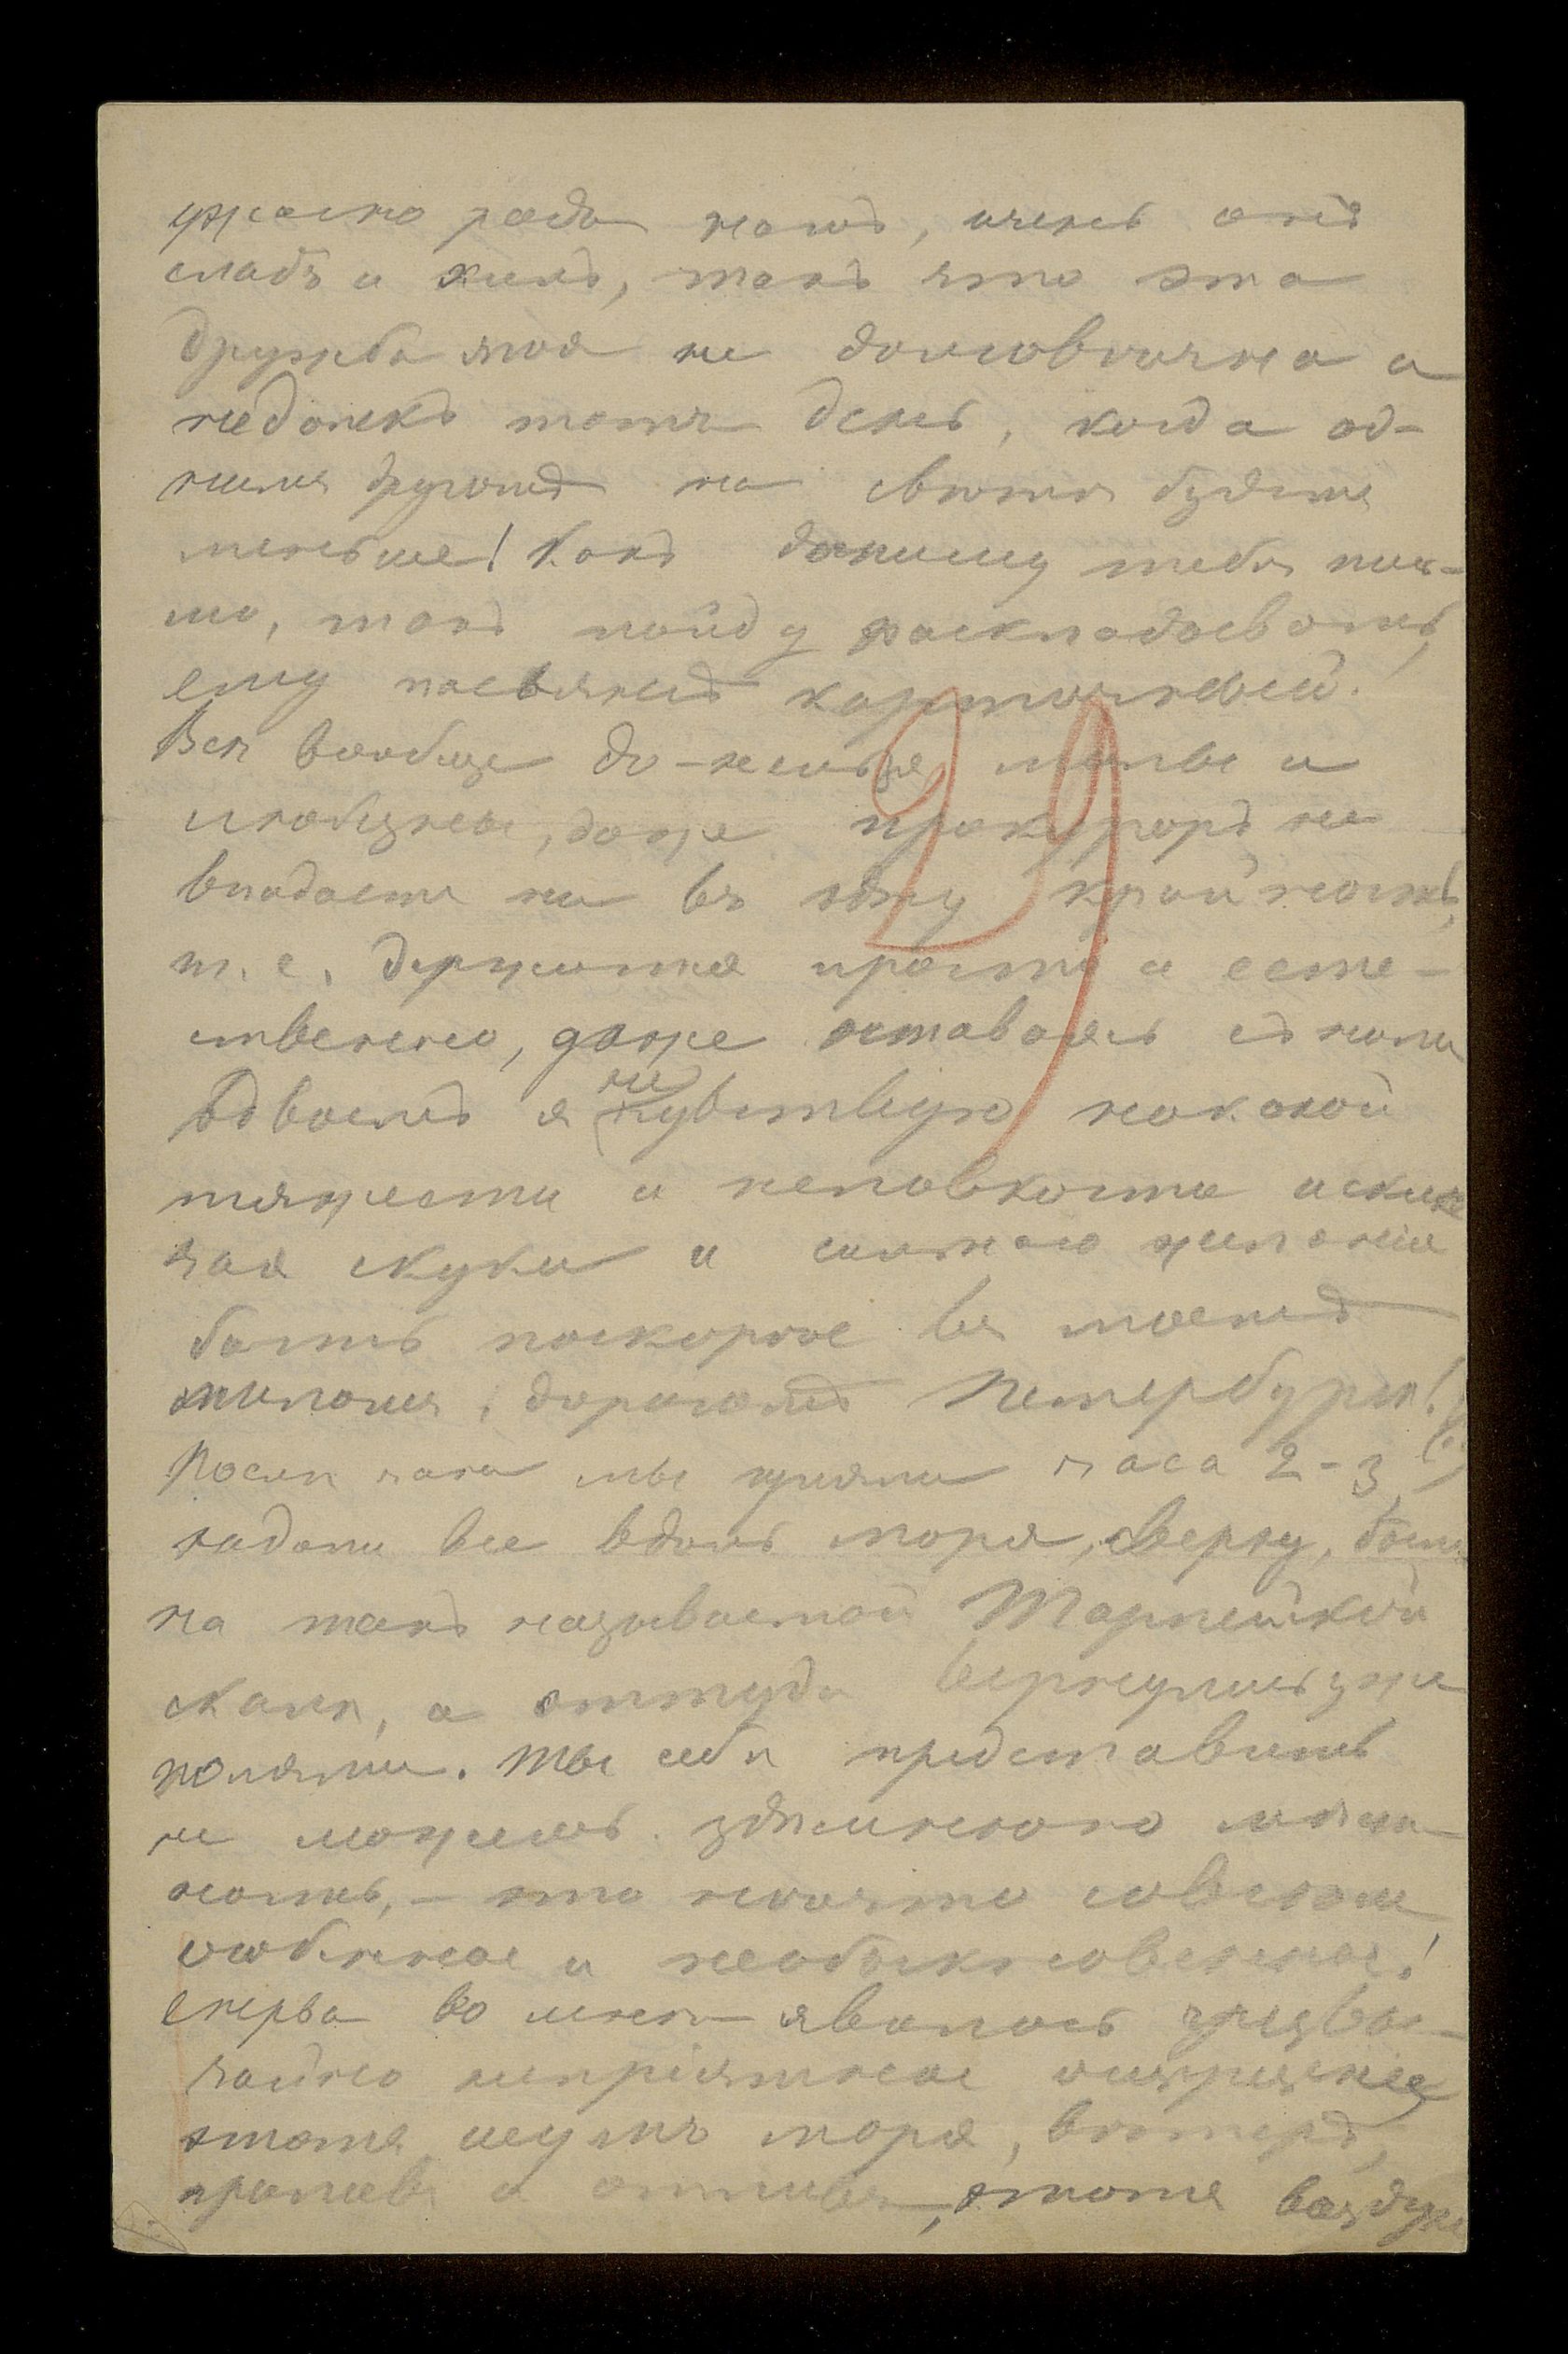 ужасно радъ намъ, очень онъ
слабъ и хилъ, такъ что эта
дружба моя не долговѣчна и
недалекъ тотъ день, когда од-
нимъ другомъ на свѣтѣ будетъ
меньше! Какъ допишу тебѣ пись-
мо, такъ пойду раскладывать
ему пасьянсъ
Всѣ вообще до-нельзя милы и
любезны, даже прокуроръ не
впадаетъ ни въ одну крайность,
т. е. держится просто и есте-
ственно, даже оставаясь съ нами
вдвоемъ я не чувствую никакой
тяжести и неловкости исклю
чая скуки и сильнаго желанія
быть поскорѣе въ моемъ
миломъ, дорогомъ Петербургѣ!
Послѣ чая мы гуляли часа 2-3,
ходили все вдоль моря, сверху, были
на такъ называемой Тарпейской
скалѣ, а оттуда вернулись уже
полями. Ты себѣ представить
не можешь здѣшнюю мѣст
ность, - это нѣчто совсѣмъ
особенное и необыкновенное!
Сперва во мнѣ явилось чрезвы-
чайно непріятное ощущеніе
этотъ шумъ моря, вѣтеръ,
приливъ и отливъ, этотъ воздухъ
29